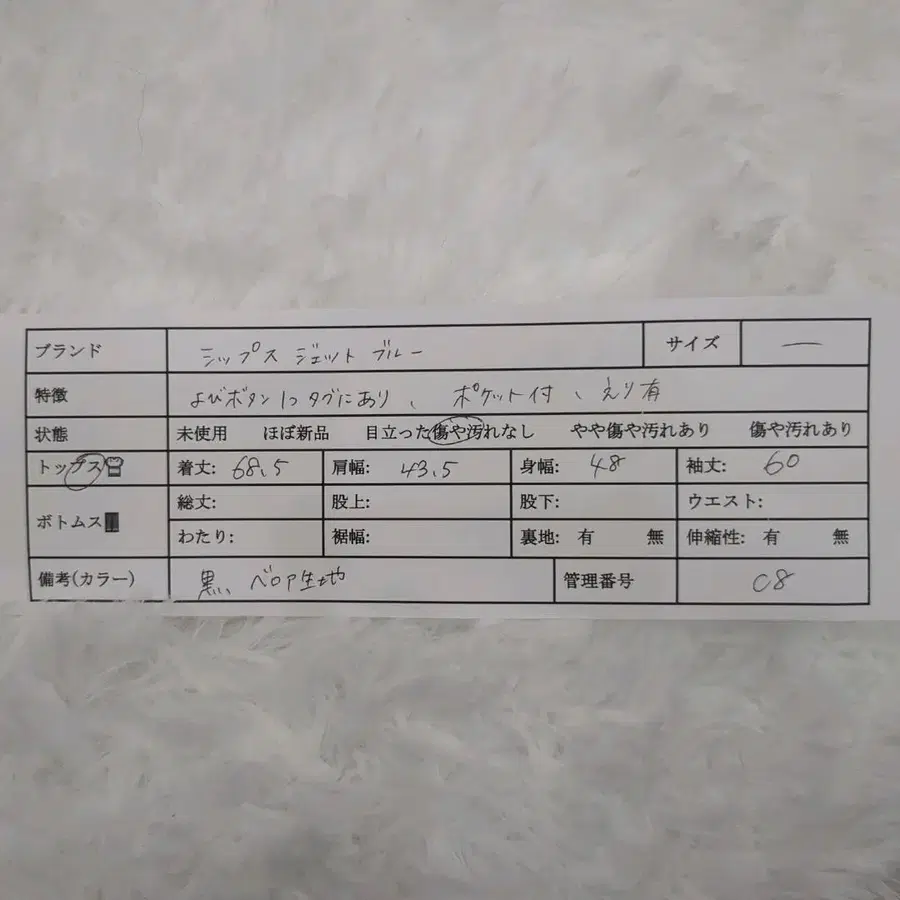 ブランド シップス ジェット ブルー サイズ ー
特徴 よびボタン1つタグにあり、ポケット付、えり有
状態 未使用 ほぼ新品 目立った傷や汚れなし やや傷や汚れあり 傷や汚れあり
トップス 着丈: 68.5 肩幅: 43.5 身幅: 48 袖丈: 60
ボトムス 総丈: 股上: 股下: ウエスト:
わたり: 裾幅: 裏地: 有 無 伸縮性: 有 無
備考(カラー) 黒、ベロア生地 管理番号 C8